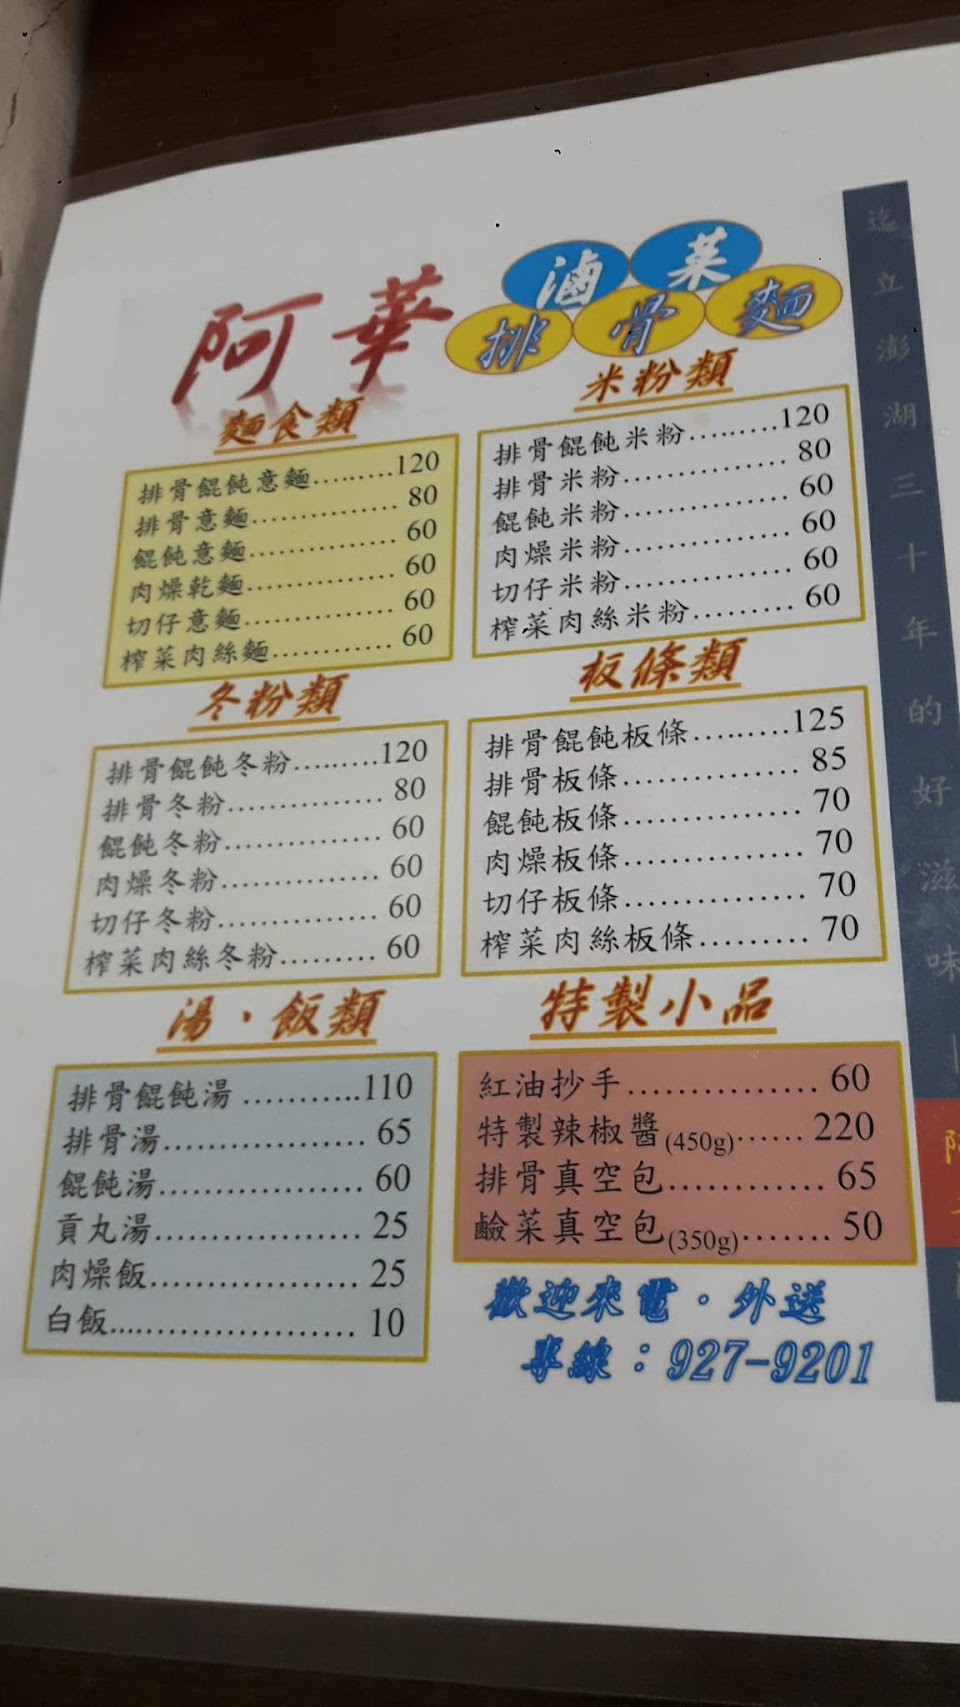 阿華
滷菜
排骨麵
麵食類
排骨餛飩意麵........120
排骨意麵............... 80
餛飩意麵............... 60
肉燥乾麵............... 60
切仔意麵............... 60
榨菜肉絲麵............ 60
米粉類
排骨餛飩米粉.........120
排骨米粉............... 80
餛飩米粉............... 60
肉燥米粉............... 60
切仔米粉............... 60
榨菜肉絲米粉......... 60
冬粉類
排骨餛飩冬粉........120
排骨冬粉............... 80
餛飩冬粉............... 60
肉燥冬粉............... 60
切仔冬粉............... 60
榨菜肉絲冬粉......... 60
板條類
排骨餛飩板條.........125
排骨板條............... 85
餛飩板條............... 70
肉燥板條............... 70
切仔板條............... 70
榨菜肉絲板條......... 70
湯、飯類
排骨餛飩湯...........110
排骨湯.................. 65
餛飩湯.................. 60
貢丸湯.................. 25
肉燥飯.................. 25
白飯..................... 10
特製小品
紅油抄手............... 60
特製辣椒醬(450g)...... 220
排骨真空包............ 65
鹼菜真空包(350g)....... 50
歡迎來電。外送
專線：927-9201
迄立澎湖三十年的好滋味